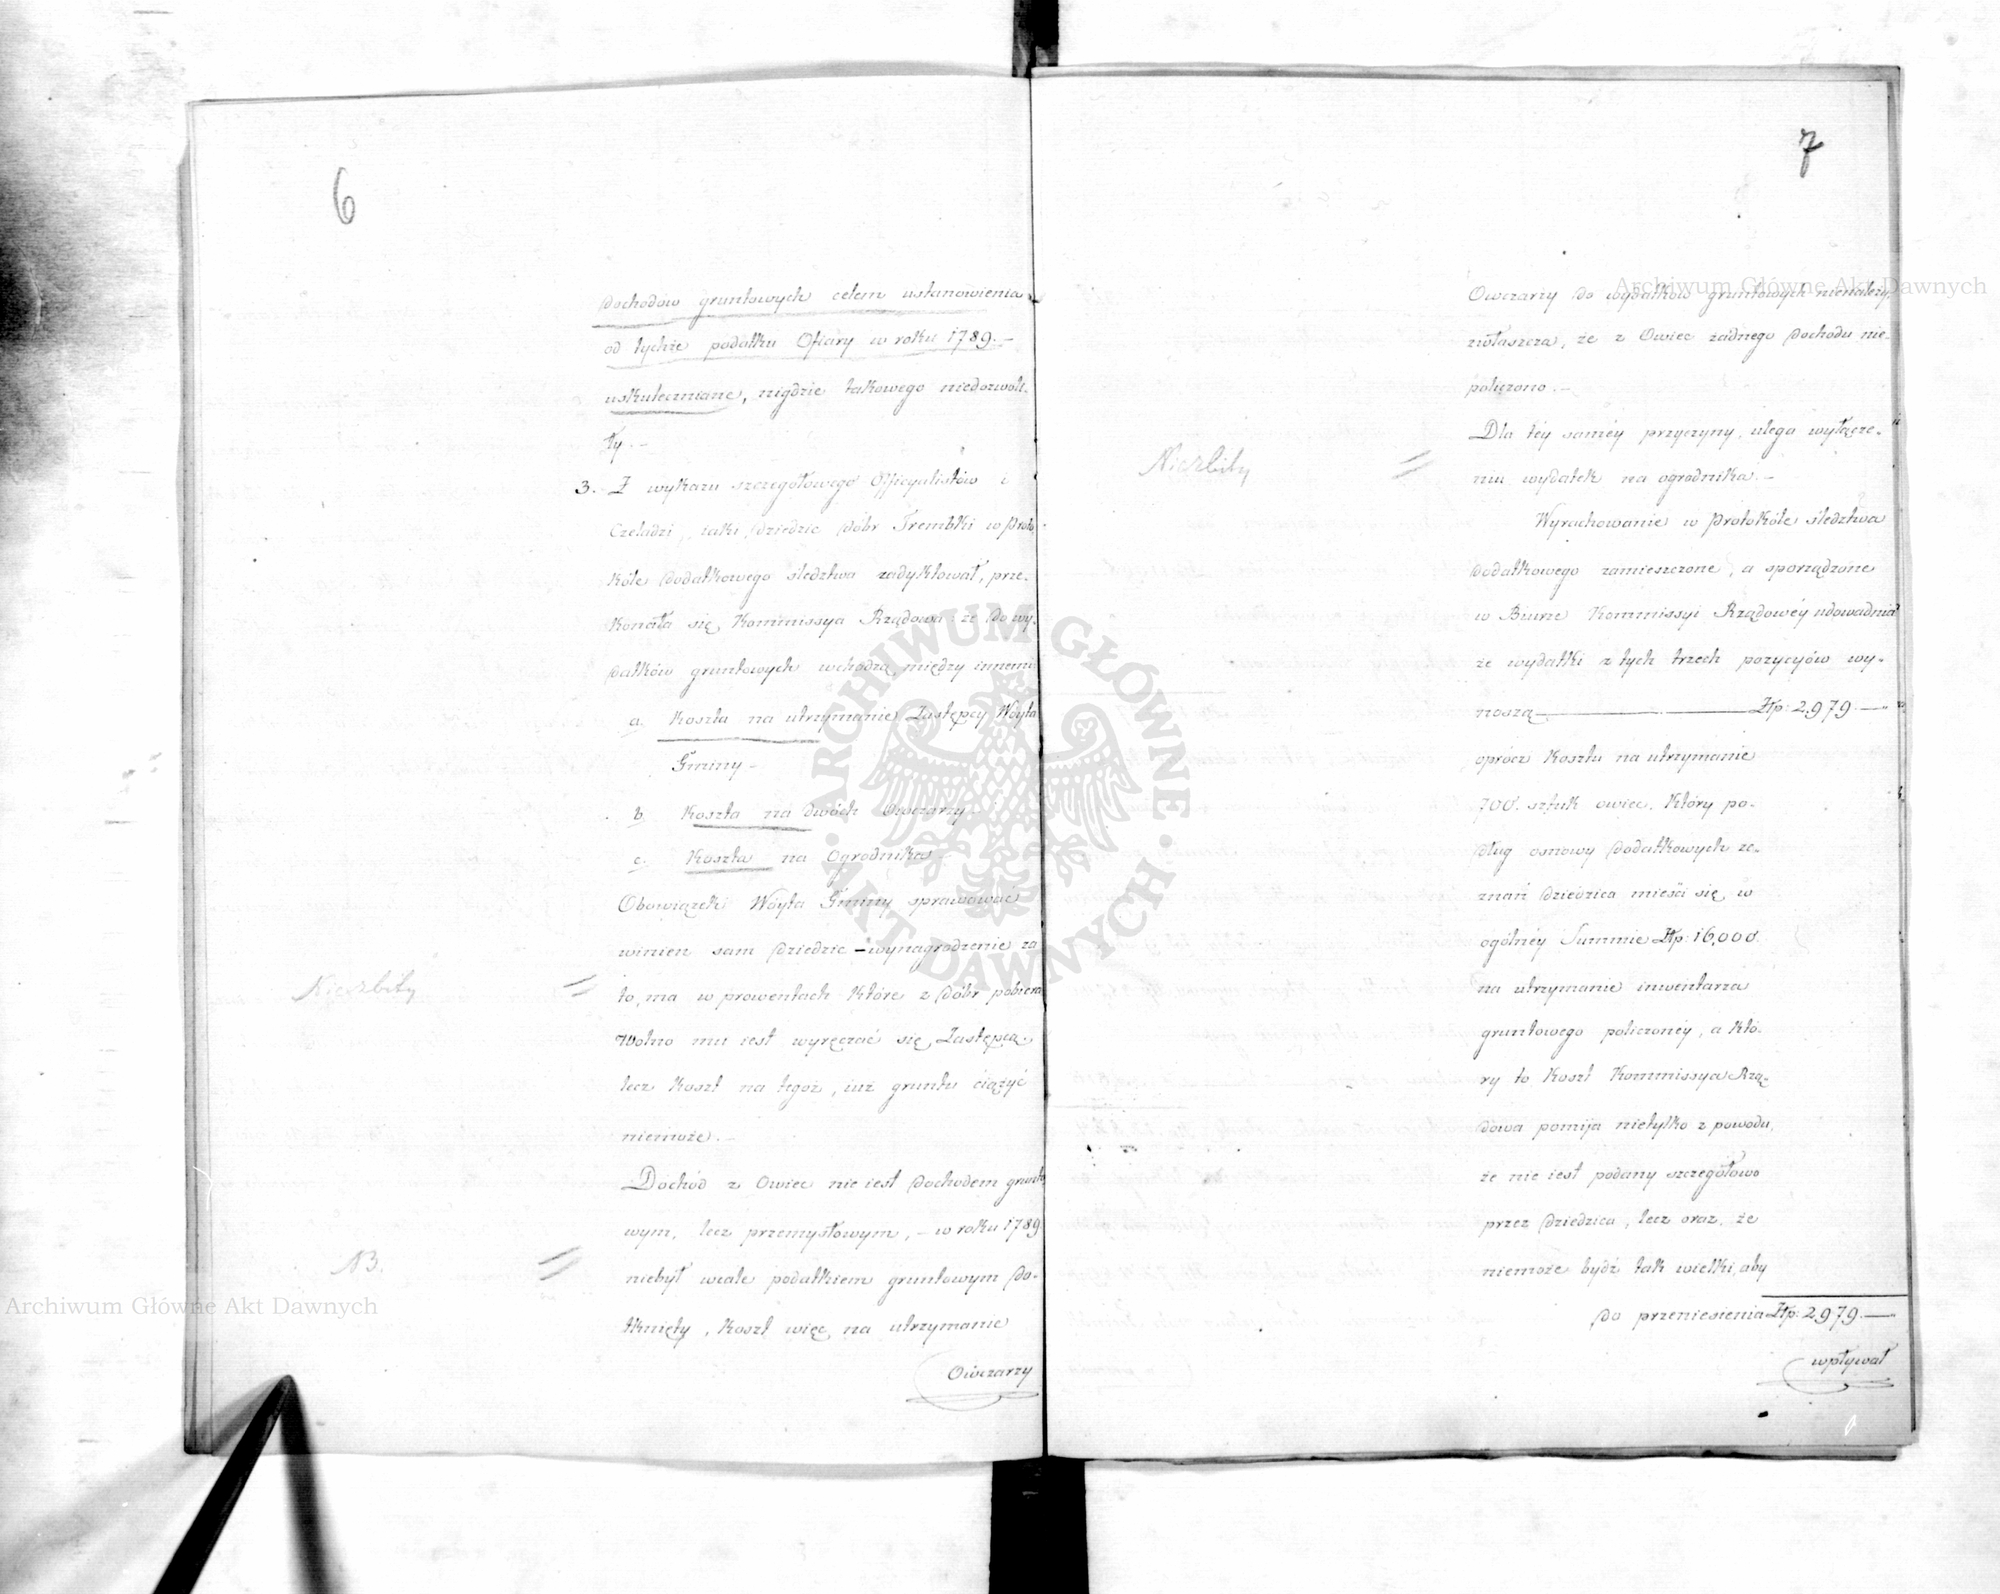 6
dochodów gruntowych celem ustanowienia
od tychże podatku Ofiary w roku 1789. –
uskuteczniane, nigdzie takowego niedozwoli-
ły. –
3. Z wykazu szczegółowego Officyalistów i
Czeladzi, iaki dziedzic dóbr Trembki w Proto-
kóle dodatkowego śledztwa zadyktował, prze-
konała się Kommissya Rządowa że do wy-
datków gruntowych wchodzą między innemi
a. Koszta na utrzymanie Zastępcy Woyta
Gminy –
b. Koszta na dwóch Owczarzy
c. Koszta na Ogrodnika –
Obowiązek Woyta Gminy sprawować
winien sam dziedzic – wynagrodzenie za
to, ma w prowentach które z dóbr pobiera
Wolno mu iest wyręczać się Zastępcą.
lecz koszt na tegoż, iuż gruntu ciążyć
niemoże. –
Dochód z Owiec nie iest dochodem grunto-
wym, lecz przemysłowym, – w roku 1789
niebył wcale podatkiem gruntowym do-
tknięty, koszt więc na utrzymanie
Owczarzy
Niezbity
NB.
7
Owczarzy do wydatków gruntowych nienależy,
zwłaszcza, że z Owiec żadnego dochodu nie-
policzono. –
Dla téy saméy przyczyny, ulega wyłącze-
niu wydatek na ogrodnika. –
Wyrachowanie w Protokóle śledztwa
dodatkowego zamieszczone, a sporządzone
w Biurze Kommissyi Rządowéy udowadnia
że wydatki z tych trzech pozycyów wy-
noszą Złp: 2,979. – „
oprócz kosztu na utrzymanie
700. sztuk owiec, który po-
dług osnowy dodatkowych ze-
znań dziedzica mieści się w
ogólnéy Summie Złp: 16,000.
na utrzymanie inwentarza
gruntowego policzonéy, a któ-
ry to koszt Kommissya Rzą-
dowa pomija nietylko z powodu,
że nie iest podany szczegółowo
przez dziedzica, lecz oraz, że
niemoże bydź tak wielki, aby
do przeniesienia Złp: 2,979. –
wpływał
Niezbity
ARCHIWUM GŁÓWNE · AKT DAWNYCH ·
Archiwum Główne Akt Dawnych
Archiwum Główne Akt Dawnych